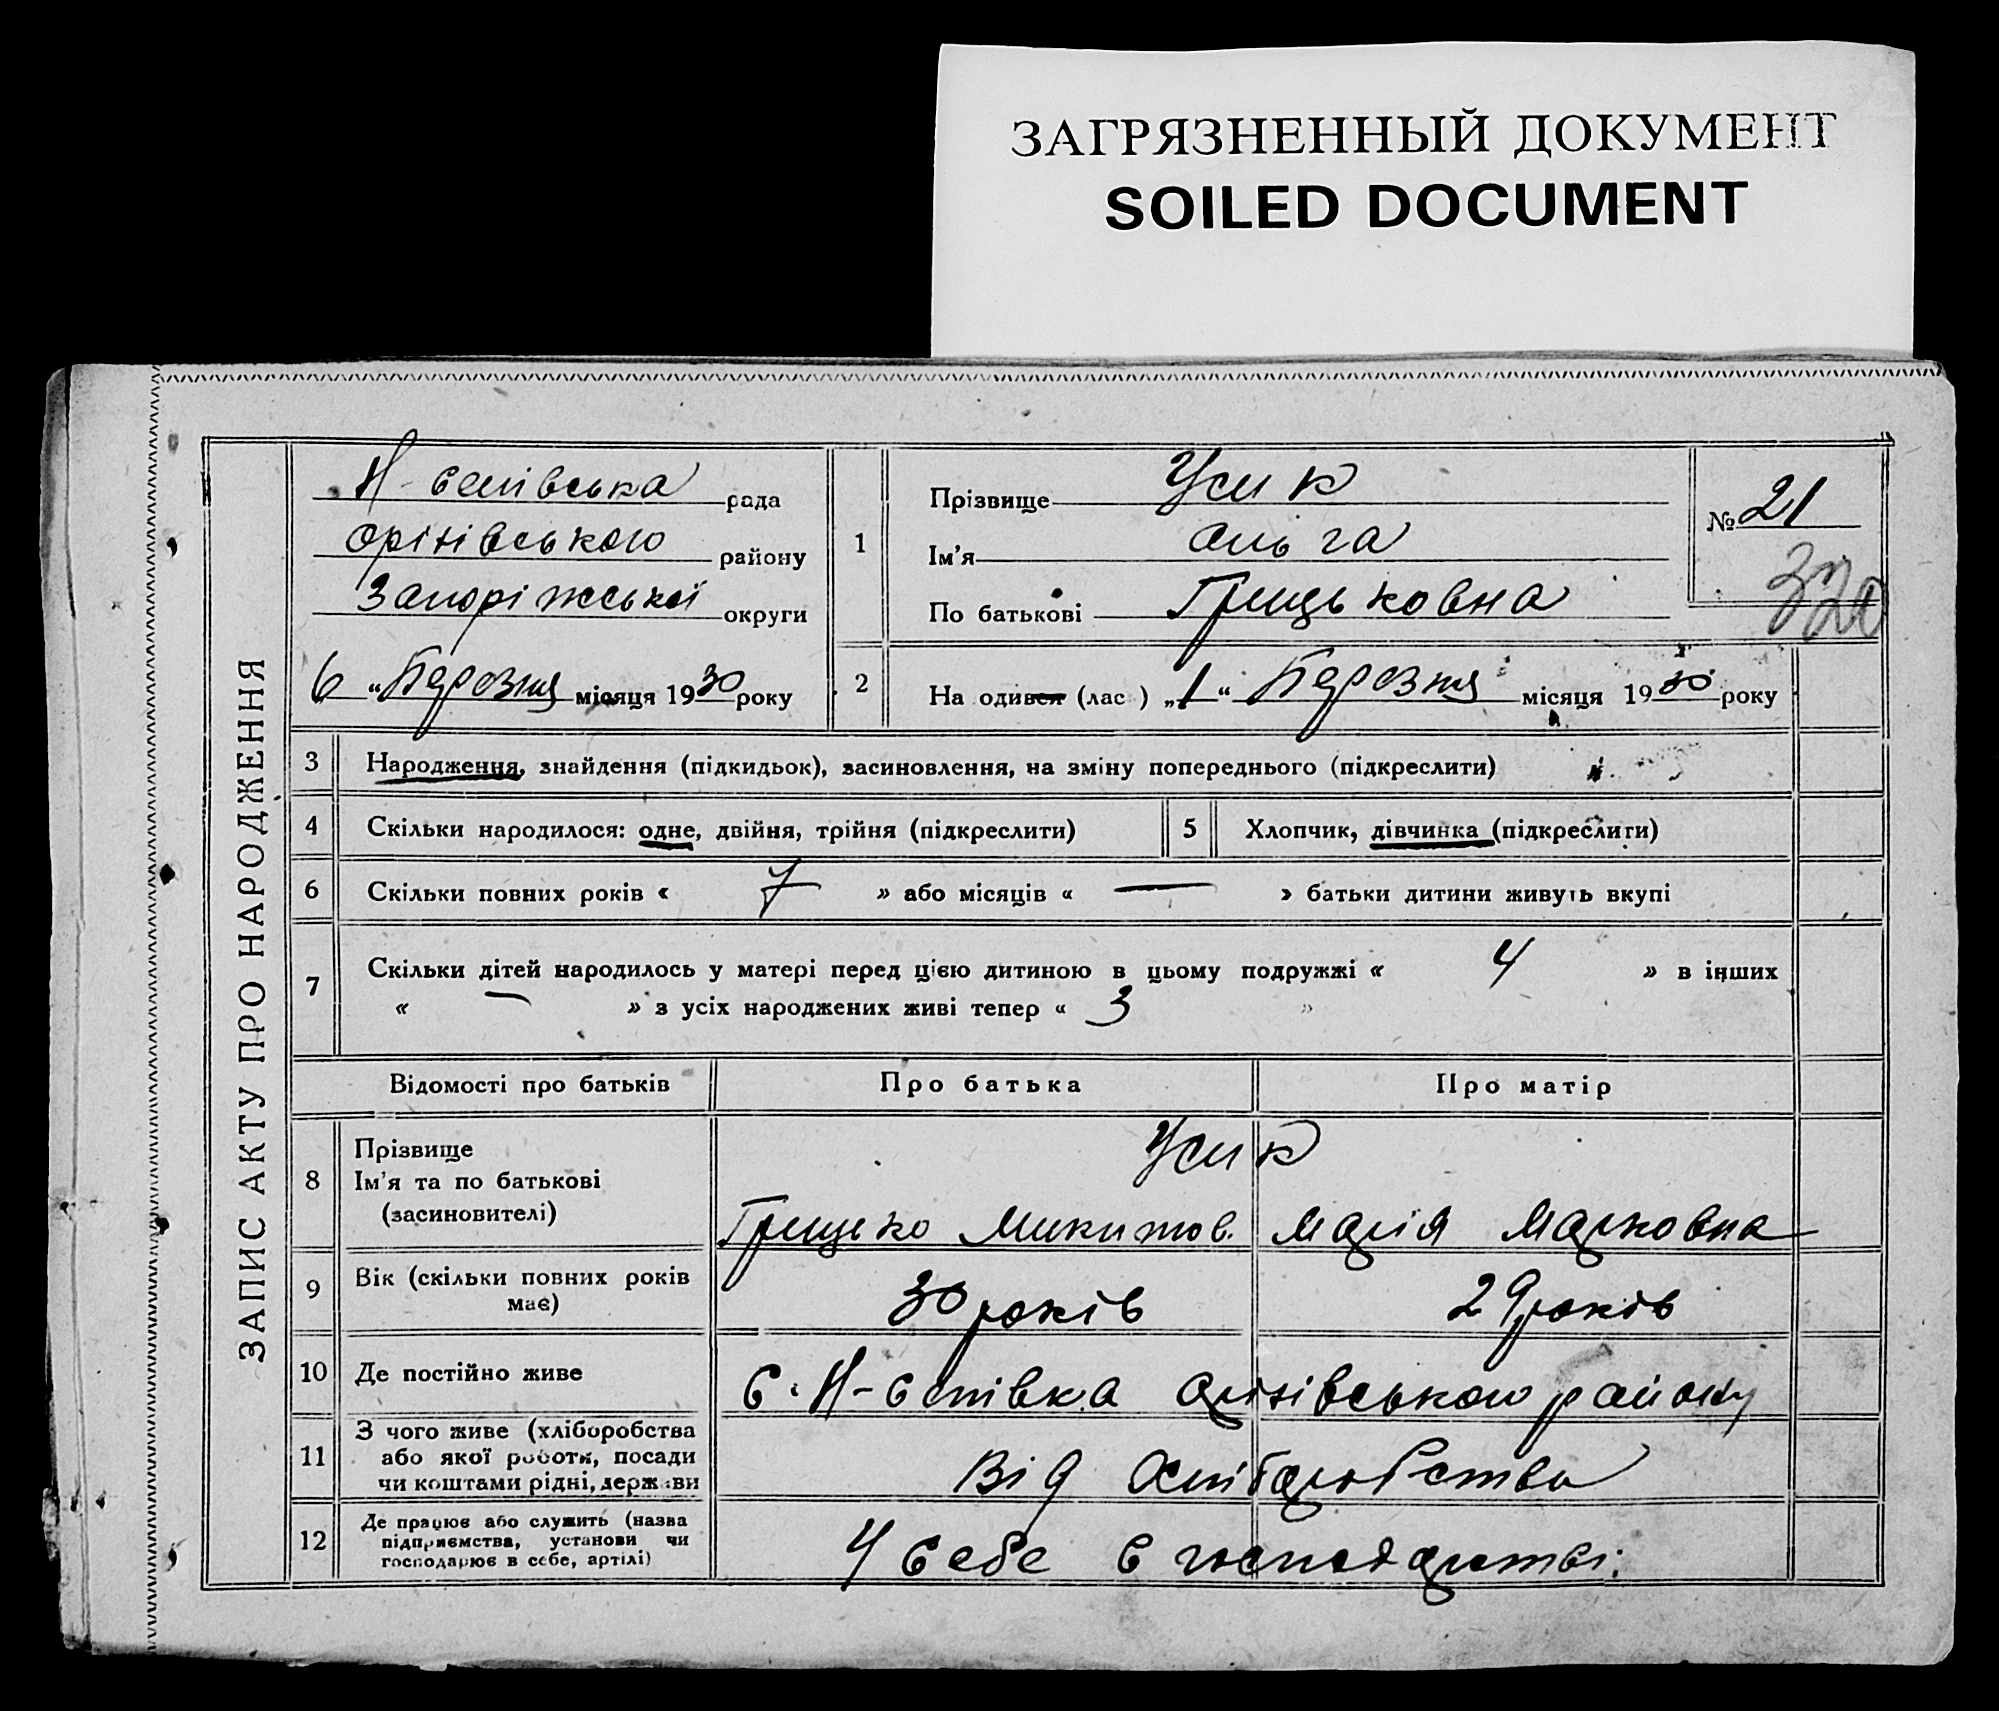 ЗАГРЯЗНЕННЫЙ ДОКУМЕНТ
SOILED DOCUMENT
ЗАПИС АКТУ ПРО НАРОДЖЕННЯ
рада
Оріхівського району
Запоріжської округи
6 „ Березня місяця 1930 року
1 Прізвище Усик
Ім'я Ольга
По батькові Грицьковна
№ 21
320
2 На одився (лас ) „1“ Березня місяця 1930 року
3 Народження, знайдення (підкидьок), засиновлення, на зміну попереднього (підкреслити)
4 Скільки народилося: одне, двійня, трійня (підкреслити) 5 Хлопчик, дівчинка (підкреслити)
6 Скільки повних років « 7 » або місяців « — » батьки дитини живуть вкупі
7 Скільки дітей народилось у матері перед цією дитиною в цьому подружжі « 4 » в інших
« — » з усіх народжених живі тепер « 3 »
Відомості про батьків Про батька Про матір
8 Прізвище Усик
Ім'я та по батькові
(засиновителі) Грицько Микитов. Марія Марковна
9 Вік (скільки повних років
має) 30 років 29 років
10 Де постійно живе Оріхівського району
11 З чого живе (хліборобства
або якої роботи, посади
чи коштами рідні, держави
Від хліборобства
12 Де працює або служить (назва
підприємства, установи чи
господарює в себе, артілі)
У себе в господарстві.